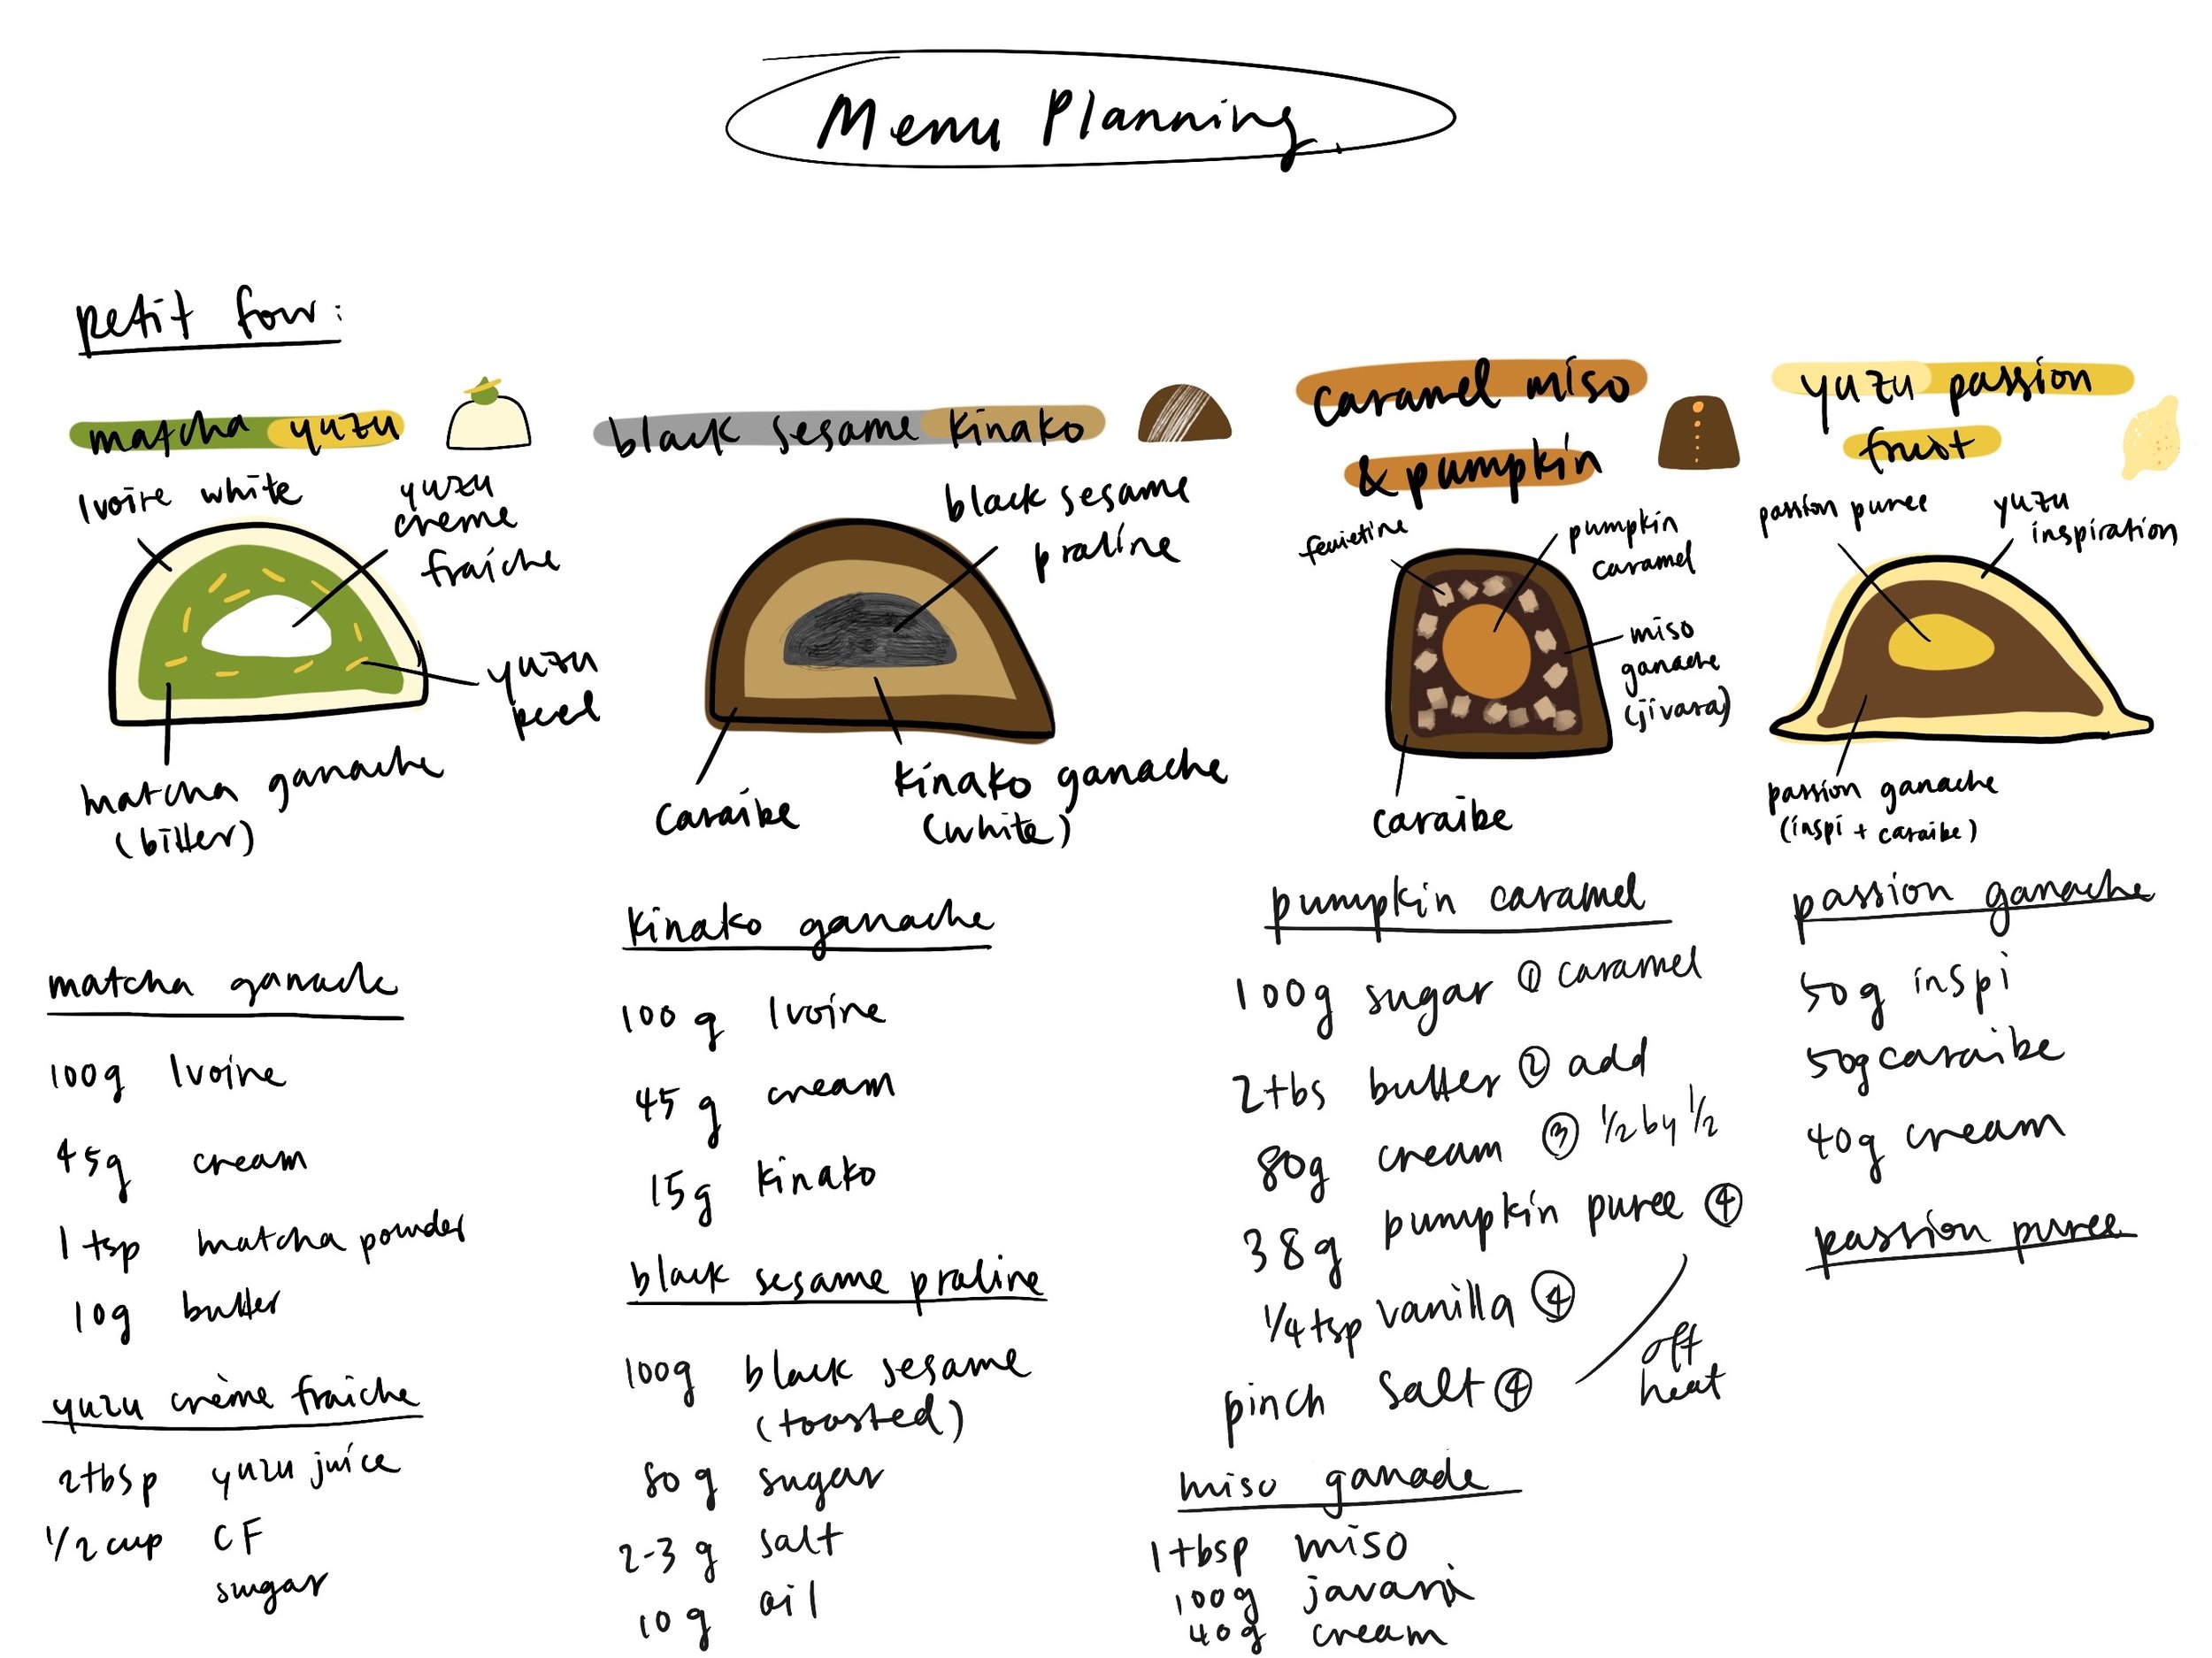 Menu Planning.
petit four:
matcha yuzu
Ivoire white
yuzu
creme
fraiche
yuzu
peel
matcha ganache
(bitter)
matcha ganache
100g Ivoire
45g cream
1 tsp matcha powder
10g butter
yuzu crème fraiche
2tbsp yuzu juice
1/2 cup CF
sugar
black sesame kinako
black sesame
praline
caraibe
kinako ganache
(white)
kinako ganache
100 g Ivoire
45 g cream
15g kinako
black sesame praline
100g black sesame
(toasted)
80 g sugar
2-3 g salt
10 g oil
caramel miso
& pumpkin
feuietine
pumpkin
caramel
miso
ganache
(jivara)
caraibe
pumpkin caramel
100g sugar ① caramel
2tbs butter ② add
80g cream ③ 1/2 by 1/2
38g pumpkin puree ④
1/4 tsp vanilla ④
pinch salt ④
off
heat
miso ganache
1 tbsp miso
100g javara
40g cream
yuzu passion
fruit
passion puree
yuzu
inspiration
passion ganache
(inspi + caraibe)
passion ganache
50g inspi
50g caraibe
40g cream
passion puree